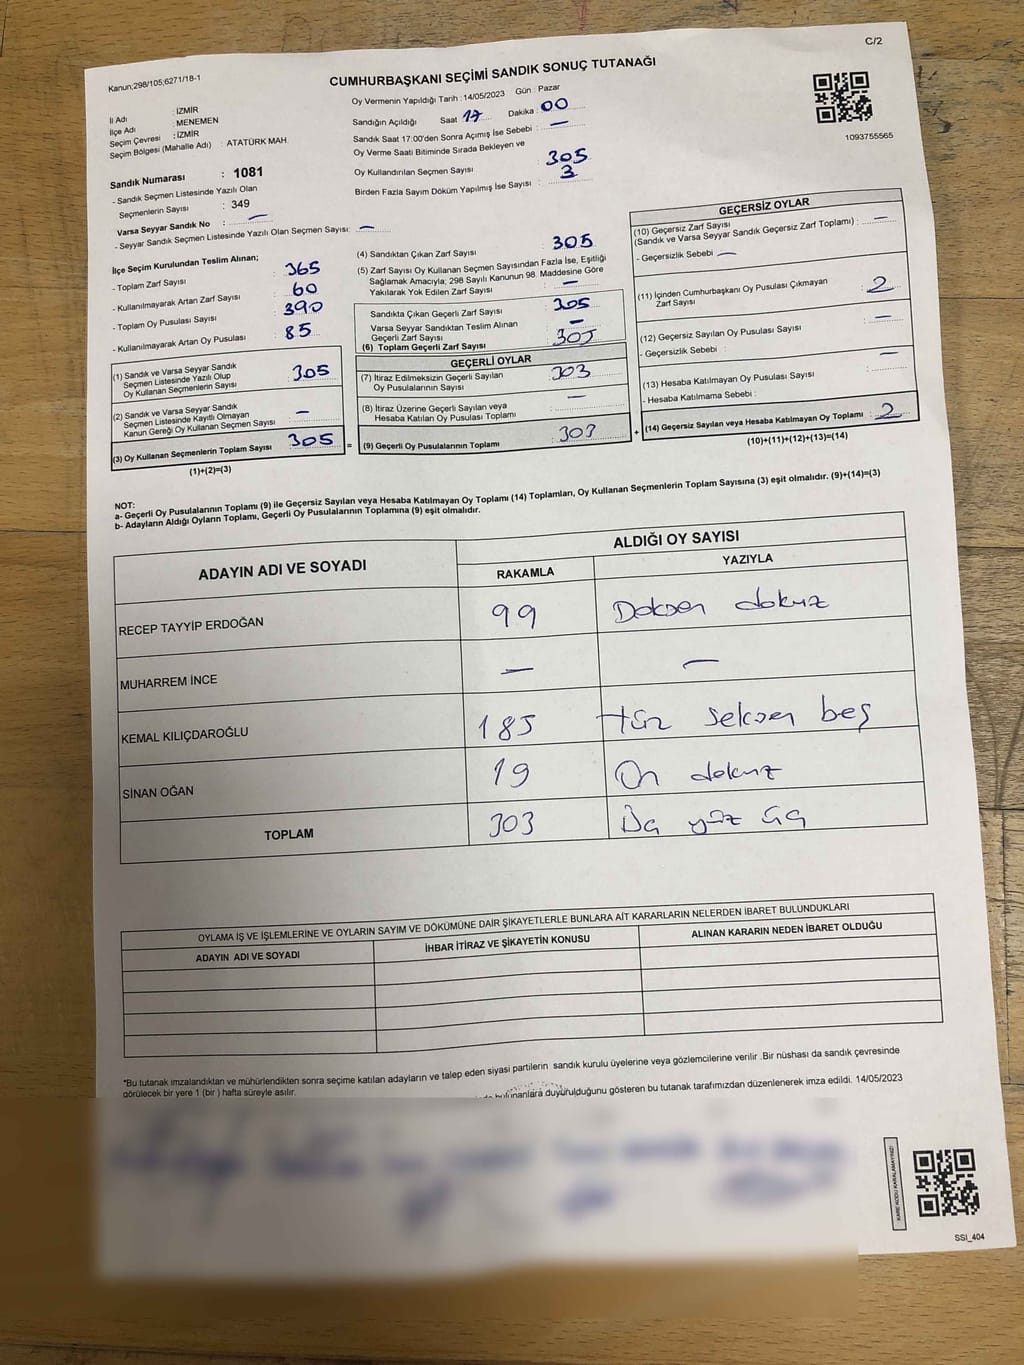 C/2
Kanun;298/105;6271/18-1
CUMHURBAŞKANI SEÇİMİ SANDIK SONUÇ TUTANAĞI
İl Adı : İZMİR
İlçe Adı : MENEMEN
Seçim Çevresi : İZMİR
Seçim Bölgesi (Mahalle Adı) : ATATÜRK MAH.
Oy Vermenin Yapıldığı Tarih : 14/05/2023 Gün : Pazar
Sandığın Açıldığı Saat 17 Dakika : 00
Sandık Saat 17:00'den Sonra Açımış İse Sebebi : —
Oy Verme Saati Bitiminde Sırada Bekleyen ve
Oy Kullandırılan Seçmen Sayısı : 305
Birden Fazla Sayım Döküm Yapılmış İse Sayısı : 3
1093755565
Sandık Numarası : 1081
- Sandık Seçmen Listesinde Yazılı Olan
Seçmenlerin Sayısı : 349
Varsa Seyyar Sandık No : —
- Seyyar Sandık Seçmen Listesinde Yazılı Olan Seçmen Sayısı: —
İlçe Seçim Kurulundan Teslim Alınan;
- Toplam Zarf Sayısı : 365
- Kullanılmayarak Artan Zarf Sayısı : 60
- Toplam Oy Pusulası Sayısı : 390
- Kullanılmayarak Artan Oy Pusulası : 85
(1) Sandık ve Varsa Seyyar Sandık
Seçmen Listesinde Yazılı Olup
Oy Kullanan Seçmenlerin Sayısı : 305
(2) Sandık ve Varsa Seyyar Sandık
Seçmen Listesinde Kayıtlı Olmayan
Kanun Gereği Oy Kullanan Seçmen Sayısı : —
(3) Oy Kullanan Seçmenlerin Toplam Sayısı : 305 =
(1)+(2)=(3)
(4) Sandıktan Çıkan Zarf Sayısı : 305
(5) Zarf Sayısı Oy Kullanan Seçmen Sayısından Fazla İse, Eşitliği
Sağlamak Amacıyla; 298 Sayılı Kanunun 98. Maddesine Göre
Yakılarak Yok Edilen Zarf Sayısı : —
Sandıkta Çıkan Geçerli Zarf Sayısı : 305
Varsa Seyyar Sandıktan Teslim Alınan
Geçerli Zarf Sayısı : —
(6) Toplam Geçerli Zarf Sayısı : 305
GEÇERLİ OYLAR
(7) İtiraz Edilmeksizin Geçerli Sayılan
Oy Pusulalarının Sayısı : 303
(8) İtiraz Üzerine Geçerli Sayılan veya
Hesaba Katılan Oy Pusulası Toplamı : —
(9) Geçerli Oy Pusulalarının Toplamı : 303 +
GEÇERSİZ OYLAR
(10) Geçersiz Zarf Sayısı
(Sandık ve Varsa Seyyar Sandık Geçersiz Zarf Toplamı) : —
- Geçersizlik Sebebi —
(11) İçinden Cumhurbaşkanı Oy Pusulası Çıkmayan
Zarf Sayısı : 2
(12) Geçersiz Sayılan Oy Pusulası Sayısı : —
- Geçersizlik Sebebi :
(13) Hesaba Katılmayan Oy Pusulası Sayısı : —
- Hesaba Katılmama Sebebi :
(14) Geçersiz Sayılan veya Hesaba Katılmayan Oy Toplamı : 2
(10)+(11)+(12)+(13)=(14)
NOT:
a- Geçerli Oy Pusulalarının Toplamı (9) ile Geçersiz Sayılan veya Hesaba Katılmayan Oy Toplamı (14) Toplamları, Oy Kullanan Seçmenlerin Toplam Sayısına (3) eşit olmalıdır. (9)+(14)=(3)
b- Adayların Aldığı Oyların Toplamı, Geçerli Oy Pusulalarının Toplamına (9) eşit olmalıdır.
ADAYIN ADI VE SOYADI
ALDIĞI OY SAYISI
RAKAMLA YAZIYLA
RECEP TAYYİP ERDOĞAN 99 Doksan dokuz
MUHARREM İNCE — —
KEMAL KILIÇDAROĞLU 185 seksen beş
SİNAN OĞAN 19 On dokuz
TOPLAM 303 yüz
OYLAMA İŞ VE İŞLEMLERİNE VE OYLARIN SAYIM VE DÖKÜMÜNE DAİR ŞİKAYETLERLE BUNLARA AİT KARARLARIN NELERDEN İBARET BULUNDUKLARI
ADAYIN ADI VE SOYADI İHBAR İTİRAZ VE ŞİKAYETİN KONUSU ALINAN KARARIN NEDEN İBARET OLDUĞU
*Bu tutanak imzalandıktan ve mühürlendikten sonra seçime katılan adayların ve talep eden siyasi partilerin sandık kurulu üyelerine veya gözlemcilerine verilir .Bir nüshası da sandık çevresinde
görülecek bir yere 1 (bir ) hafta süreyle asılır.
duyurulduğunu gösteren bu tutanak tarafımızdan düzenlenerek imza edildi. 14/05/2023
KARE KODU KARALAMAYINIZ!
SSI_404